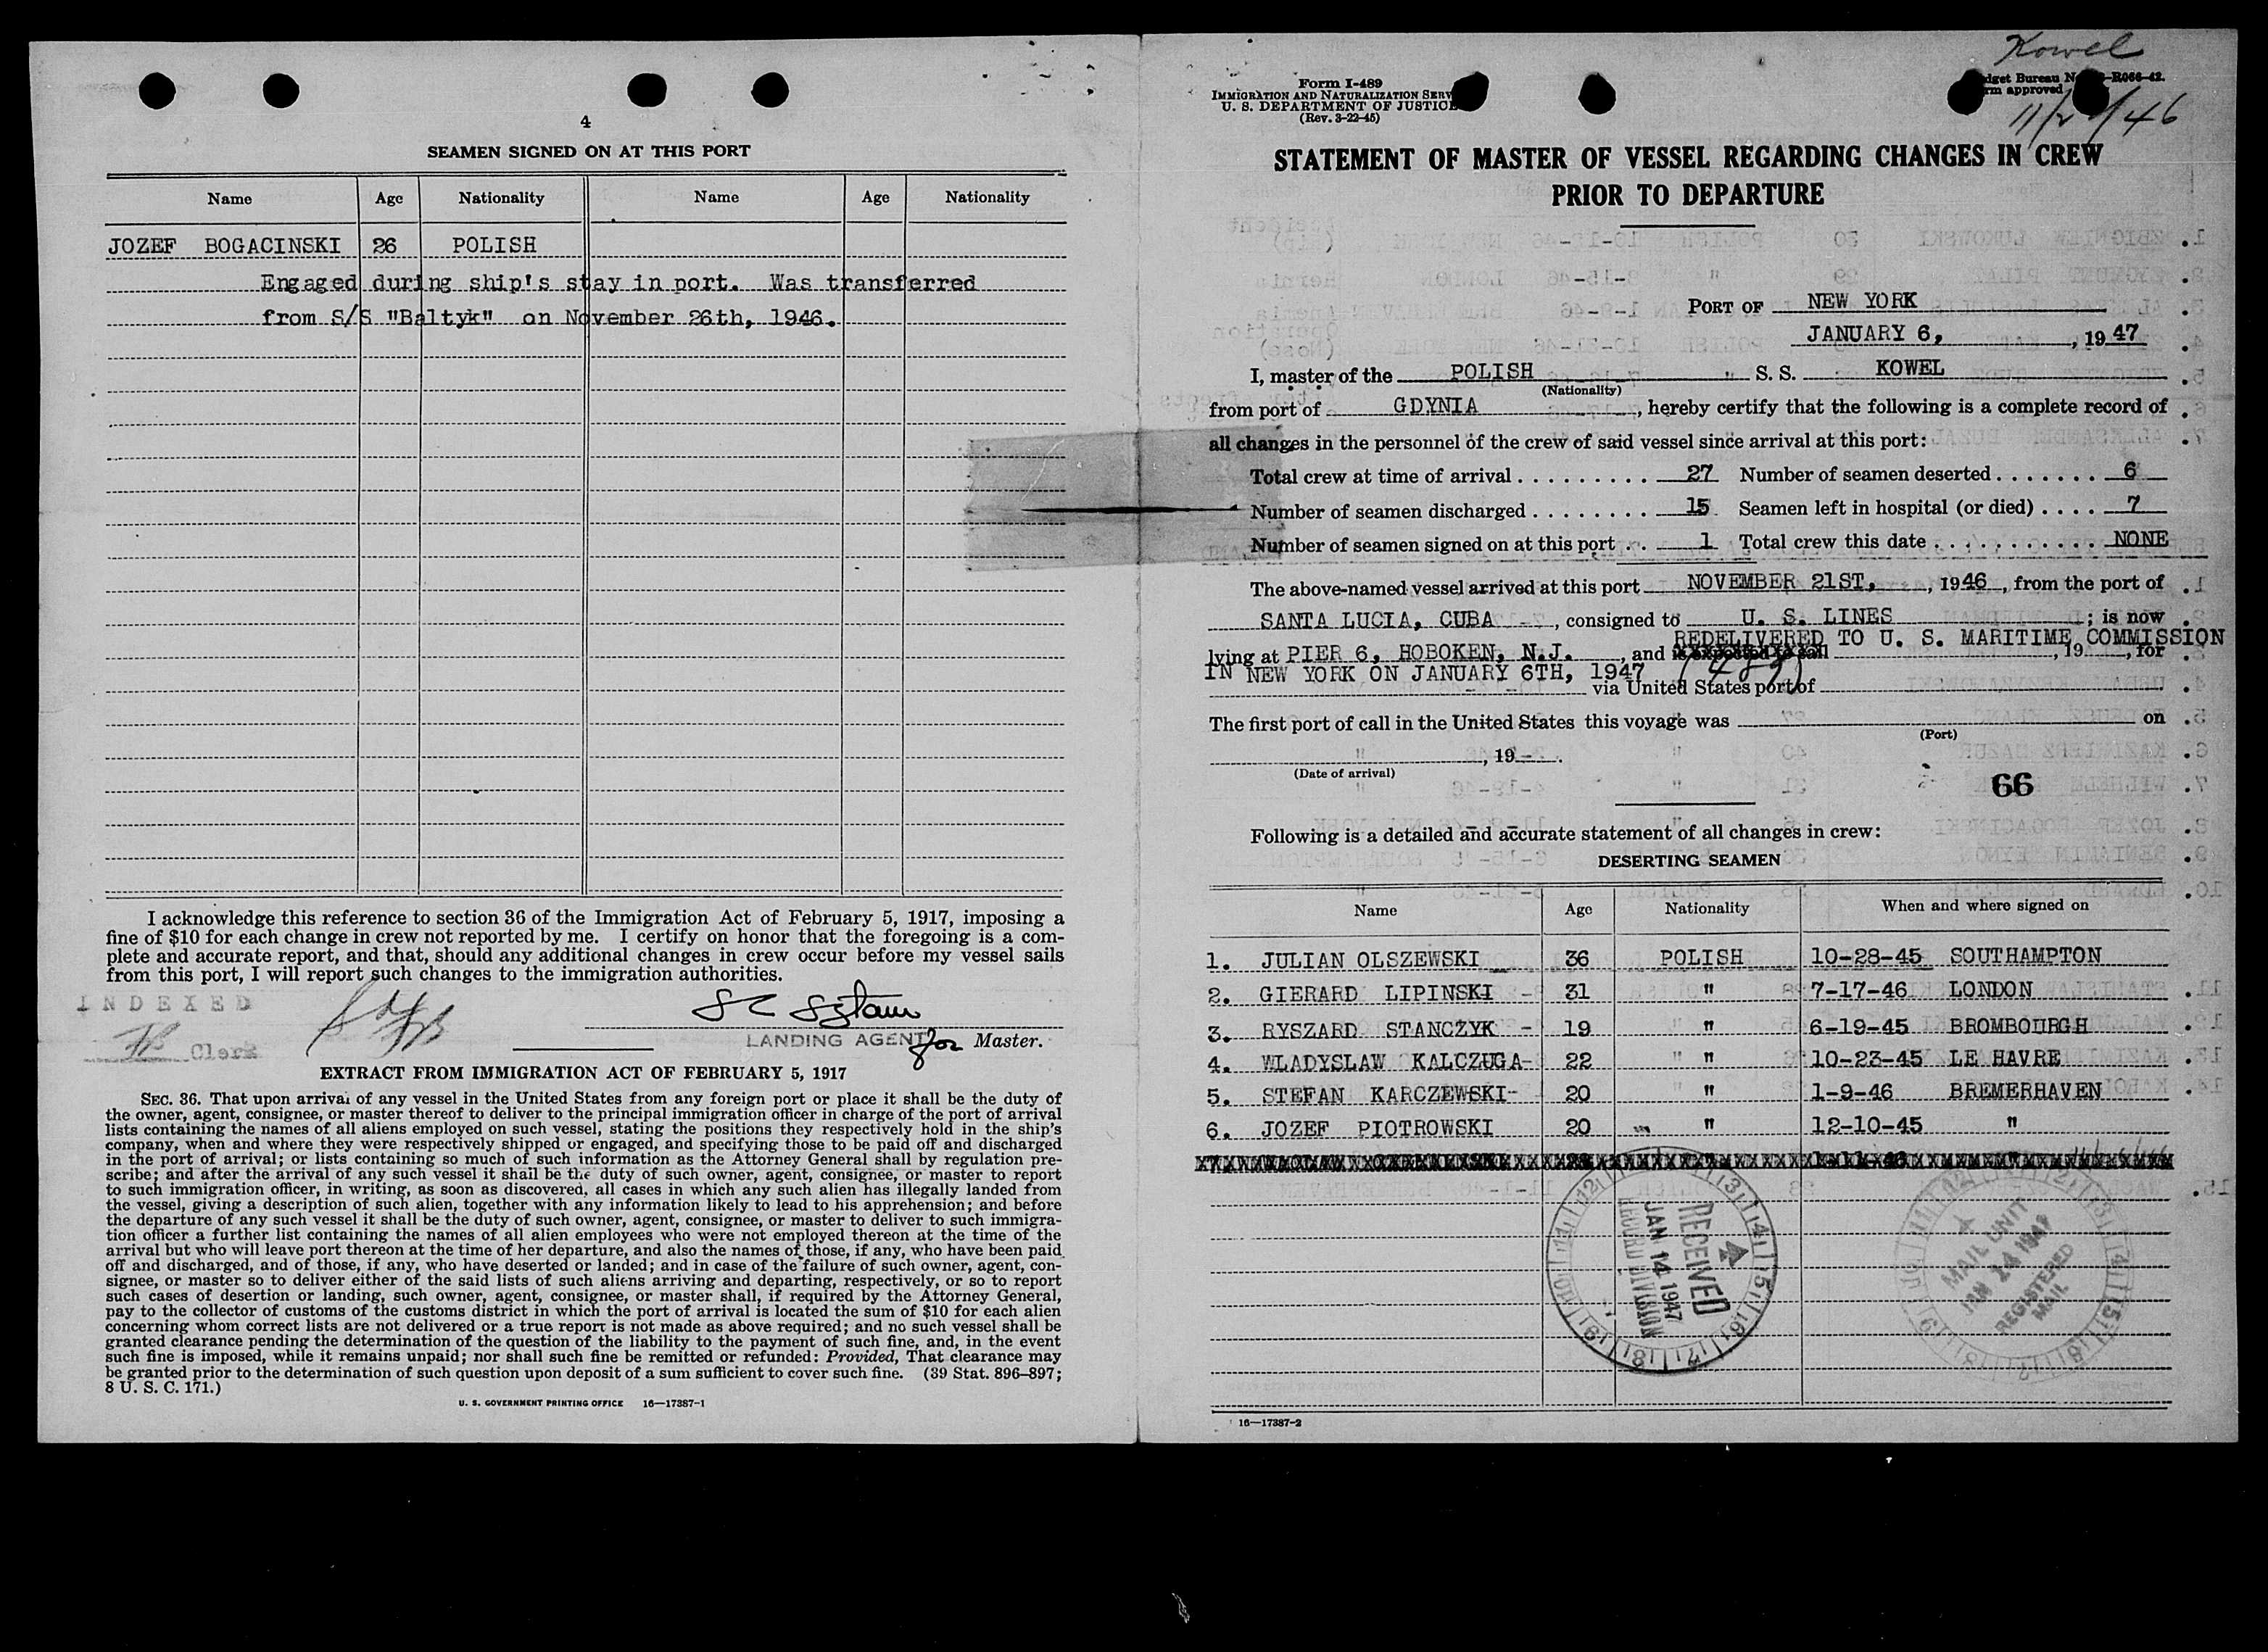 4
SEAMEN SIGNED ON AT THIS PORT
Name Age Nationality Name Age Nationality
JOZEF BOGACINSKI 26 POLISH
Engaged during ship's stay in port. Was transferred
from S/S "Baltyk" on November 26th, 1946.
I acknowledge this reference to section 36 of the Immigration Act of February 5, 1917, imposing a
fine of $10 for each change in crew not reported by me. I certify on honor that the foregoing is a com-
plete and accurate report, and that, should any additional changes in crew occur before my vessel sails
from this port, I will report such changes to the immigration authorities.
INDEXED
Clerk
LANDING AGENT for Master.
EXTRACT FROM IMMIGRATION ACT OF FEBRUARY 5, 1917
SEC. 36. That upon arrival of any vessel in the United States from any foreign port or place it shall be the duty of
the owner, agent, consignee, or master thereof to deliver to the principal immigration officer in charge of the port of arrival
lists containing the names of all aliens employed on such vessel, stating the positions they respectively hold in the ship's
company, when and where they were respectively shipped or engaged, and specifying those to be paid off and discharged
in the port of arrival; or lists containing so much of such information as the Attorney General shall by regulation pre-
scribe; and after the arrival of any such vessel it shall be the duty of such owner, agent, consignee, or master to report
to such immigration officer, in writing, as soon as discovered, all cases in which any such alien has illegally landed from
the vessel, giving a description of such alien, together with any information likely to lead to his apprehension; and before
the departure of any such vessel it shall be the duty of such owner, agent, consignee, or master to deliver to such immigra-
tion officer a further list containing the names of all alien employees who were not employed thereon at the time of the
arrival but who will leave port thereon at the time of her departure, and also the names of those, if any, who have been paid
off and discharged, and of those, if any, who have deserted or landed; and in case of the failure of such owner, agent, con-
signee, or master so to deliver either of the said lists of such aliens arriving and departing, respectively, or so to report
such cases of desertion or landing, such owner, agent, consignee, or master shall, if required by the Attorney General,
pay to the collector of customs of the customs district in which the port of arrival is located the sum of $10 for each alien
concerning whom correct lists are not delivered or a true report is not made as above required; and no such vessel shall be
granted clearance pending the determination of the question of the liability to the payment of such fine, and, in the event
such fine is imposed, while it remains unpaid; nor shall such fine be remitted or refunded: Provided, That clearance may
be granted prior to the determination of such question upon deposit of a sum sufficient to cover such fine. (39 Stat. 896–897;
8 U. S. C. 171.)
U. S. GOVERNMENT PRINTING OFFICE 16—17387-1
Kowel
Form I-489
IMMIGRATION AND NATURALIZATION SERV
U. S. DEPARTMENT OF JUSTICE
(Rev. 3-22-45)
dget Bureau N R066-42.
rm approved
STATEMENT OF MASTER OF VESSEL REGARDING CHANGES IN CREW
PRIOR TO DEPARTURE
PORT OF NEW YORK
JANUARY 6, , 1947
I, master of the POLISH S. S. KOWEL
(Nationality)
from port of GDYNIA, hereby certify that the following is a complete record of
all changes in the personnel of the crew of said vessel since arrival at this port:
Total crew at time of arrival . . . . . . . . . . 27 Number of seamen deserted . . . . . . . 6
Number of seamen discharged . . . . . . . . 15 Seamen left in hospital (or died) . . . . 7
Number of seamen signed on at this port . . 1 Total crew this date . . . . . . . . . . . NONE
The above-named vessel arrived at this port NOVEMBER 21ST, , 1946, from the port of
SANTA LUCIA, CUBA, consigned to U. S. LINES; is now
REDELIVERED TO U. S. MARITIME COMMISSION
lying at PIER 6, HOBOKEN, N.J., and is expected to sail , 19 , for
IN NEW YORK ON JANUARY 6TH, 1947 (489)
via United States port of
The first port of call in the United States this voyage was on
(Port)
, 19 .
(Date of arrival)
66
Following is a detailed and accurate statement of all changes in crew:
DESERTING SEAMEN
Name Age Nationality When and where signed on
1. JULIAN OLSZEWSKI 36 POLISH 10-28-45 SOUTHAMPTON
2. GIERARD LIPINSKI 31 " 7-17-46 LONDON
3. RYSZARD STANCZYK - 19 " 6-19-45 BROMBOURGH
4. WLADYSLAW KALCZUGA- 22 " 10-23-45 LE HAVRE
5. STEFAN KARCZEWSKI- 20 " 1-9-46 BREMERHAVEN
6. JOZEF PIOTROWSKI 20 " 12-10-45 "
RECEIVED
JAN 14 1947
RECORD DIVISION
MAIL UNIT
JAN 14 1947
REGISTERED
MAIL
16—17387-2